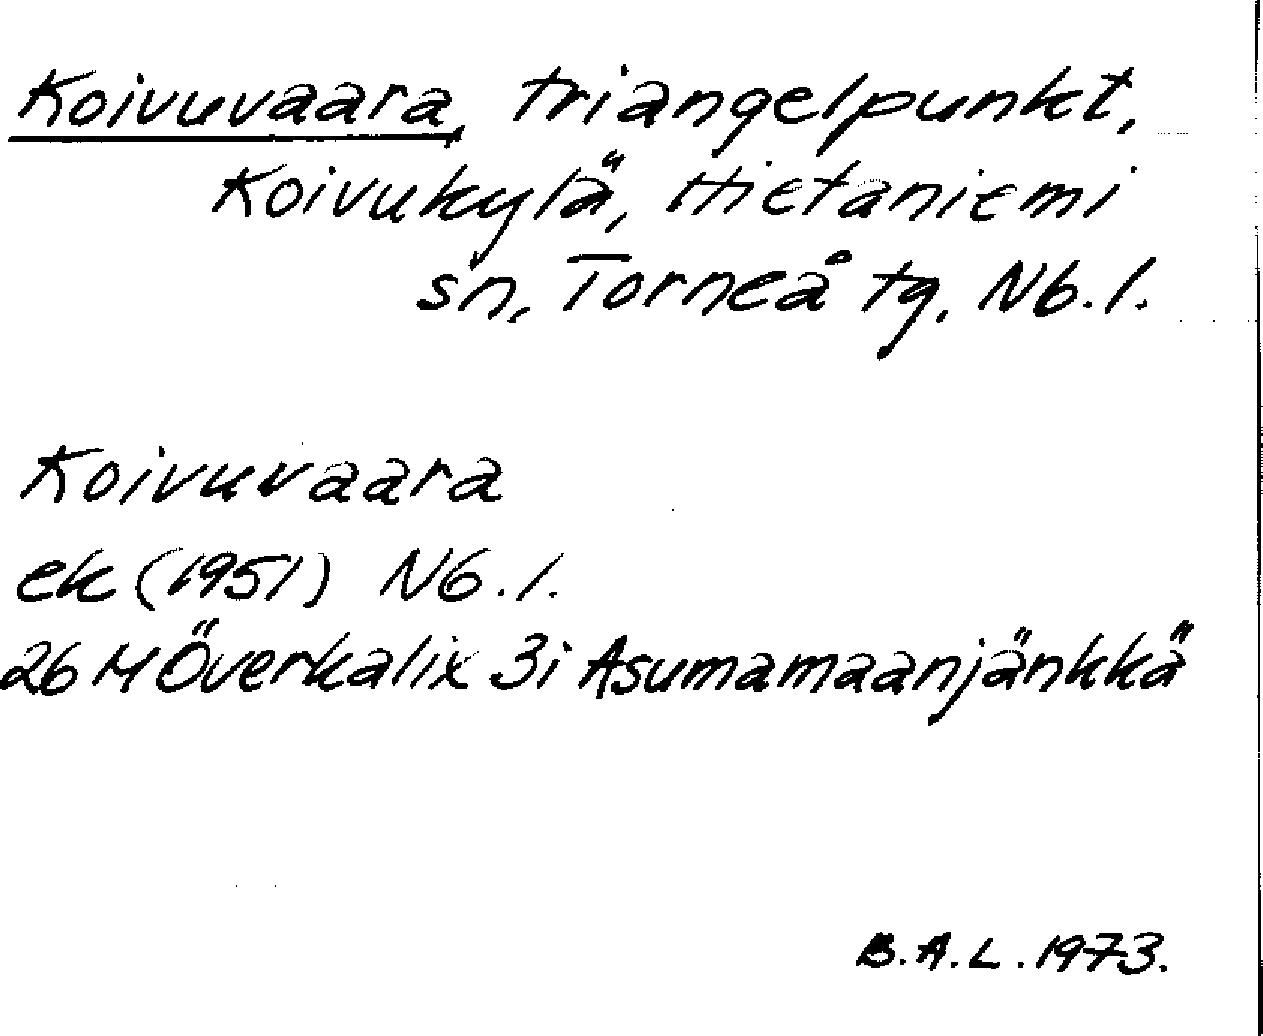 Koivuvaara, triangelpunkt,
Koivukylä, Hietaniemi
sn, Torneå tg, Nb.l.
Koivuvaara
ek (1951) Nb.l.
26 M Överkalix 3i Asumamaanjänkkä
B.A.L. 1973.